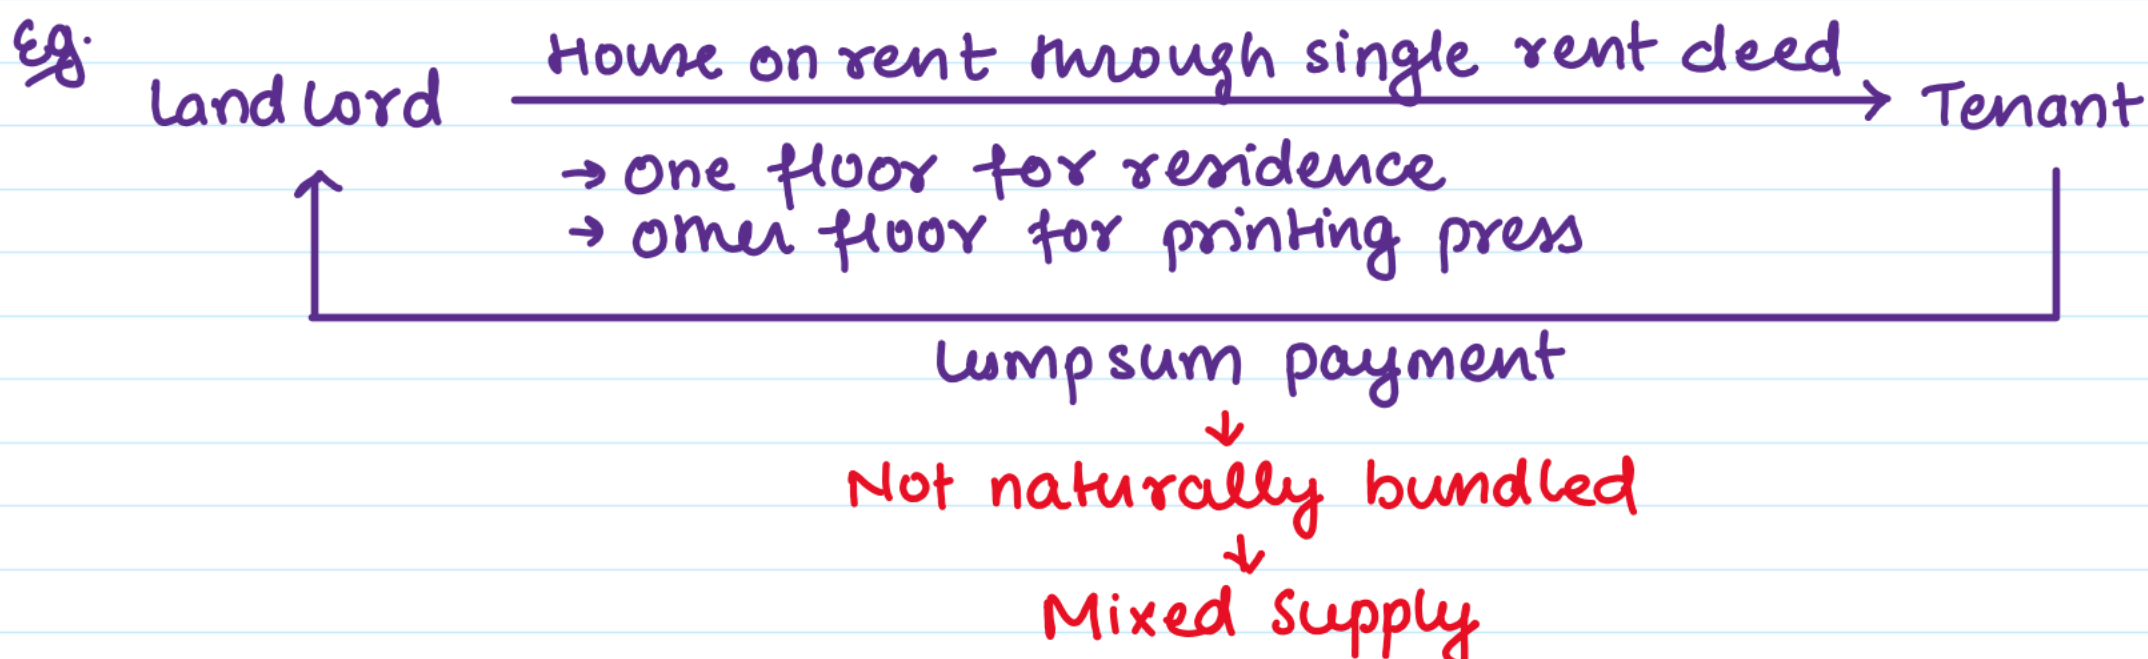 Eg.
House on rent through single rent deed
Landlord
Tenant
→ one floor for residence
→ other floor for printing press
Lumpsum payment
↓
Not naturally bundled
↓
Mixed Supply